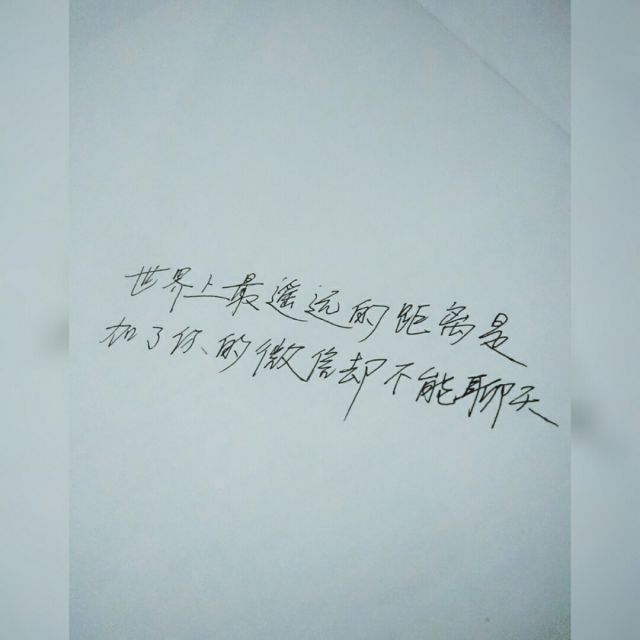 世界上最遥远的距离是
加了你的微信却不能聊天